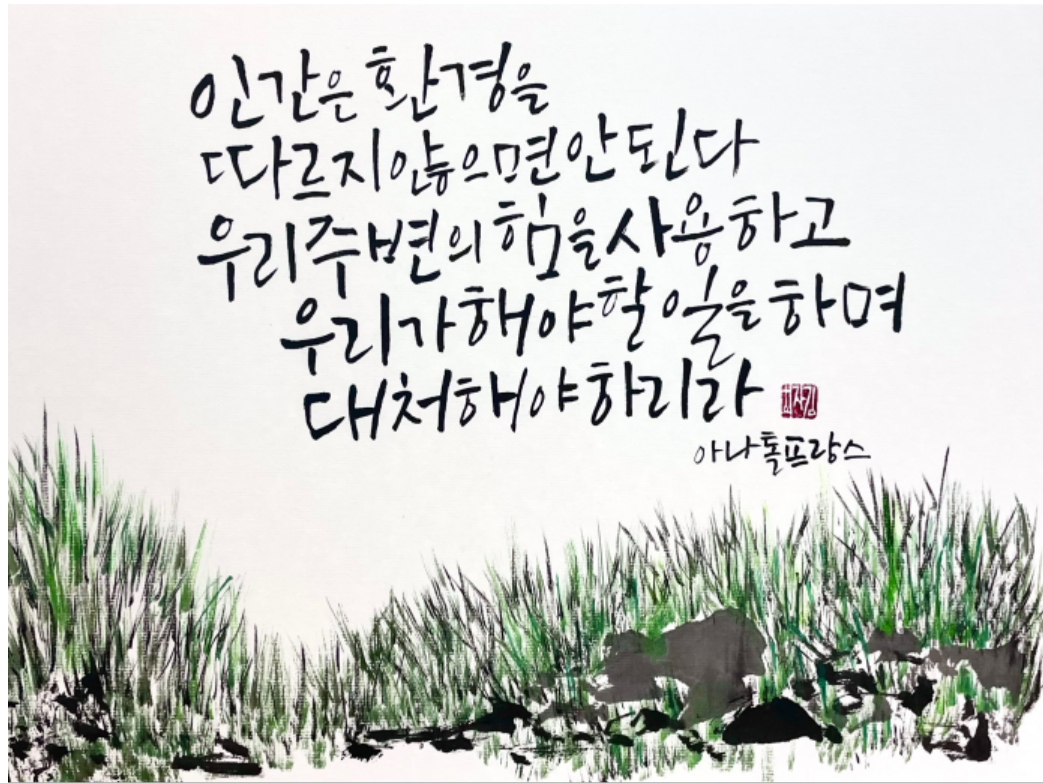 인간은 환경을
따르지 않으면 안 된다
우리 주변의 힘을 사용하고
우리가 해야 할 일을 하며
대처해야 하리라
아나톨프랑스